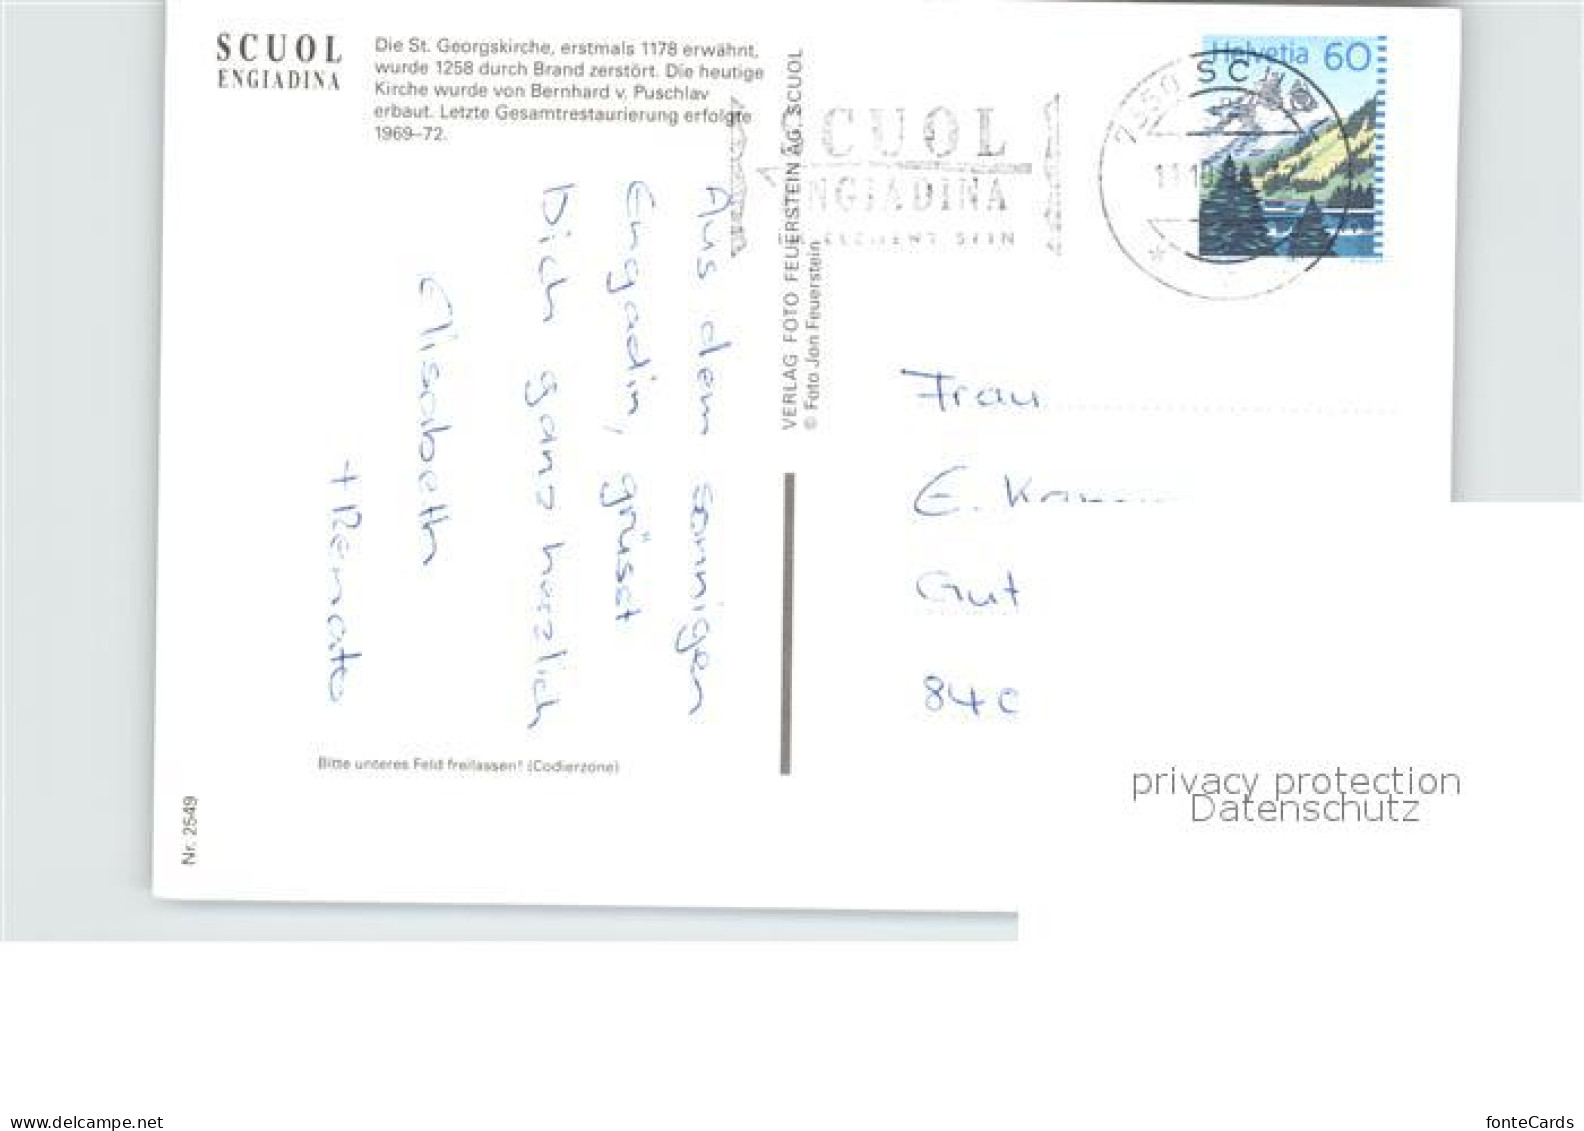 SCUOL
ENGIADINA
Die St. Georgskirche, erstmals 1178 erwähnt,
wurde 1258 durch Brand zerstört. Die heutige
Kirche wurde von Bernhard v. Puschlav
erbaut. Letzte Gesamtrestaurierung erfolgte
1969–72.
Aus dem sonnigen
Engadin, grüsst
Dich ganz herzlich
Elisabeth
+ Renato
Bitte unteres Feld freilassen! (Codierzone)
Nr. 2549
VERLAG FOTO FEUERSTEIN AG, SCUOL
© Foto Jon Feuerstein
SCUOL
ENGIADINA
7550 SC
Helvetia 60
Frau
E.
Gut
84
privacy protection
Datenschutz
www.delcampe.net
fonteCards